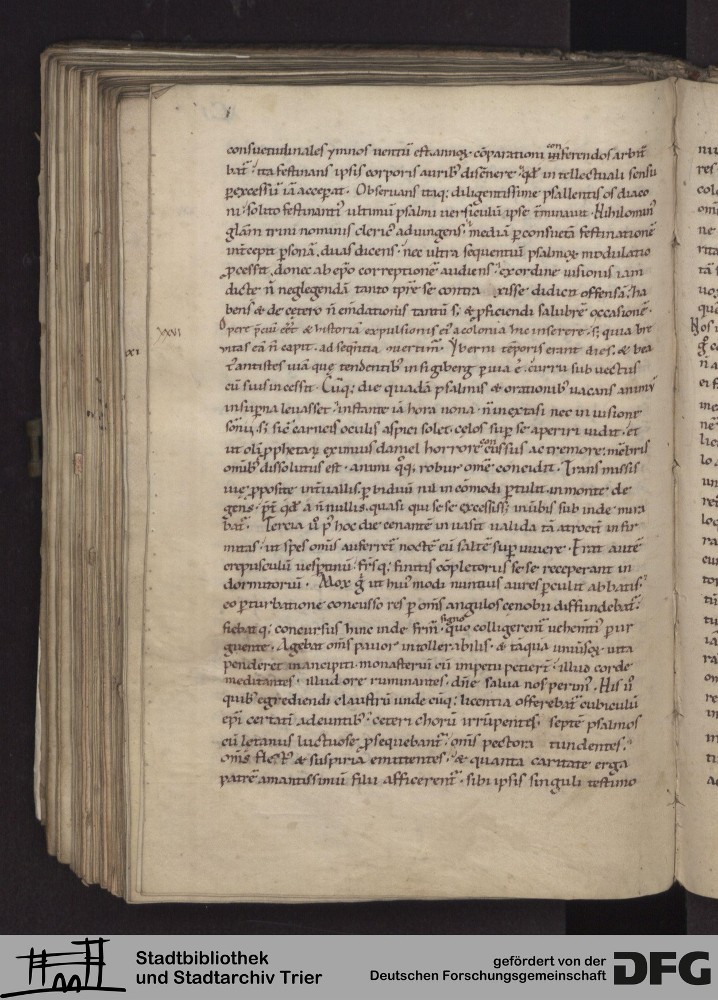 consuetudinales ymnos uentū est. annoꝝ cōparationi conferendos arbitͣ
batͬ. ita festinans ipsis corporis aurib; discernere qd in tellectuali sensu
ꝑ excessū iā acceꝑat. Obseruans itaq; diligentissime psallentis os diaco
ni solito festinantiꝰ ultimū psalmi uersiculū ipse t̄minauit. Nihilominꝰ
glām trini nominis clericꝰ adiungens mediā ꝑ consuetā festinationē
intcepit psonā. duas dicens. nec ultra sequentiū psalmoꝝ modulatio
ꝓcessit. donec ab ep̄o correptionē audiens ex ordine uisionis iam
dicte n̄ neglegendā tanto tp̄re se contra xisse didicit offensā. ha
bens & de cetero n̄ em̄dationis tantū s; & ꝓficiendi salubrē occasionē.
xxvi
Opere p̄ciū ēēt & historiā expulsionis eiꝰ a colonia hic inserere. s; quia bre
uitas eā n̄ capit. ad seqͣntia uertimꝰ. Yberni tēporis erant dies. & bea
xi
tꝰ antistes uiā que tendentib; in sigiberg ꝑuia ē. curru sub uectus
cū suis incessit. Cūq; die quadā psalmis & orationib; uacans animū
in suꝑna leuasset. instante iā hora nona. n̄ in extasi nec in uisione
sōnii. s; sic carneis oculis aspici solet. celos suꝑ se aperiri uidit. et
ut olī ꝓphetaꝝ eximius daniel horrore concussus ac tremore. mēbris
omīb; dissolutus est. animi qͦq; robur omē concidit. Trans missis
uie ꝓposite int̄uallis. ꝑ biduū nil in cōmodi ꝑtulit. in monte de
gens. p̄t qd a n̄nullis. quasi qui se se excessiss; in uisis sub inde mira
batͬ. Tercia ū p̄ hoc die cenantē in uasit ualida tā atrociť infir
mitas. ut spes omīs auferretͬ noctē eū saltē suꝑ uiuere. Erat autē
crepusculū uespͭinū. frs̄q; finitis cōpletoriis se se receperant in
dormitoriū. Mox gͦ ut huiꝰ modi nuntius aures ꝑculit abbatis.
eo ꝑturbatione concusso res ꝑ om̄s angulos cenobii diffundebatͬ.
fiebatq; concursus hinc inde frm̄. signo quo colligerentͬ uehemt̄i ꝑ ur
guente. Agebat om̄s pauor intollerabilis. & tāqua uniusꝗ; uita
penderet in ancipiti. monasteriū cū impetu petierͭ. illud corde
meditantes. illud ore ruminantes. dn̄e salua nos perimꝰ. His ū
quib; egrediendi claustrū unde cūq; licentia offerebatͬ cubiculū
ep̄i certatī adeuntib;. ceteri chorū irrūpentes. septē psalmos
cū letaniis luctuose ꝓsequebantͬ. om̄s pectora tundentes.
om̄s fletꝰ & suspiria emittentes. & quanta caritate erga
patrē amantissimū filii afficerentͬ. sibi ipsis singuli testimo
Stadtbibliothek
und Stadtarchiv Trier
gefördert von der
Deutschen Forschungsgemeinschaft
DFG